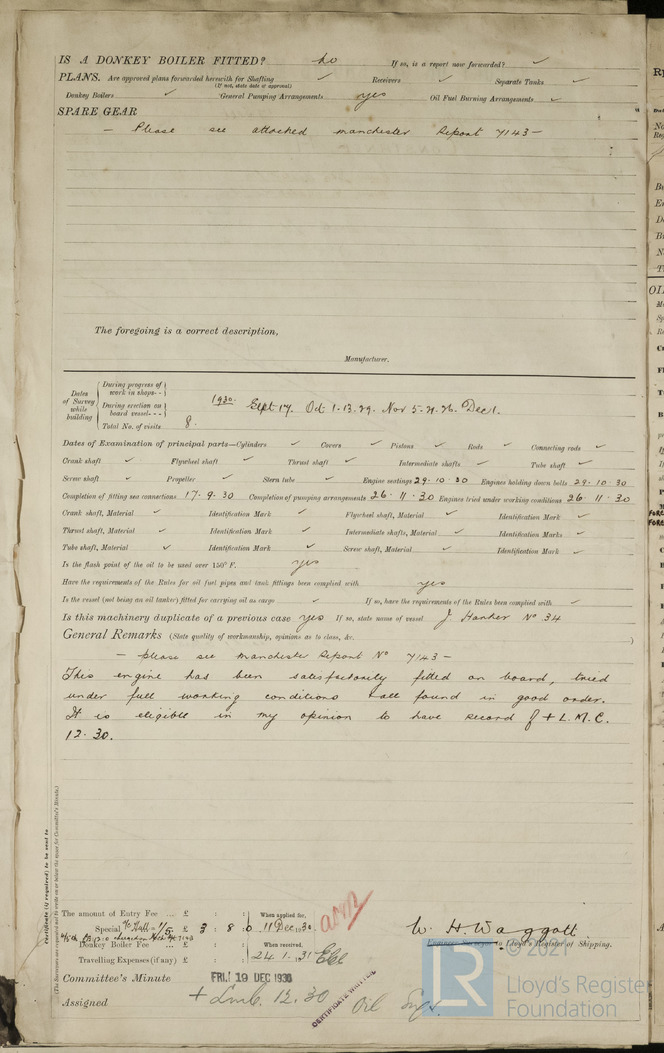 IS A DONKEY BOILER FITTED? No If so, is a report now forwarded? ✓
PLANS. Are approved plans forwarded herewith for Shafting ✓ Receivers ✓ Separate Tanks ✓
(If not, state date of approval)
Donkey Boilers ✓ General Pumping Arrangements yes Oil Fuel Burning Arrangements ✓
SPARE GEAR
— Please see attached Manchester Report 7143 —
The foregoing is a correct description,
Manufacturer.
Dates of Survey while building
During progress of work in shops - -
During erection on board vessel - - -
1930. Sept. 17. Oct 1. 13. 29. Nov 5. 21. 26. Dec 1.
Total No. of visits 8.
Dates of Examination of principal parts—Cylinders ✓ Covers ✓ Pistons ✓ Rods ✓ Connecting rods ✓
Crank shaft ✓ Flywheel shaft ✓ Thrust shaft ✓ Intermediate shafts ✓ Tube shaft ✓
Screw shaft ✓ Propeller ✓ Stern tube ✓ Engine seatings 29.10.30 Engines holding down bolts 29.10.30
Completion of fitting sea connections 17.9.30 Completion of pumping arrangements 26.11.30 Engines tried under working conditions 26.11.30
Crank shaft, Material ✓ Identification Mark ✓ Flywheel shaft, Material ✓ Identification Mark ✓
Thrust shaft, Material ✓ Identification Mark ✓ Intermediate shafts, Material ✓ Identification Marks ✓
Tube shaft, Material ✓ Identification Mark ✓ Screw shaft, Material ✓ Identification Mark ✓
Is the flash point of the oil to be used over 150° F. yes
Have the requirements of the Rules for oil fuel pipes and tank fittings been complied with yes
Is the vessel (not being an oil tanker) fitted for carrying oil as cargo ✓ If so, have the requirements of the Rules been complied with ✓
Is this machinery duplicate of a previous case yes If so, state name of vessel J Harker No 34
General Remarks (State quality of workmanship, opinions as to class, &c.)
— please see Manchester Report No 7143 —
This engine has been satisfactorily fitted on board, tried
under full working conditions & all found in good order.
It is eligible in my opinion to have record of + L.M.C.
12.30.
Certificate (if required) to be sent to
(The Surveyors are requested not to write on or below the space for Committee's Minute.)
The amount of Entry Fee ... £ : : When applied for,
Special £ 3 : 8 : 0 11 Dec. 1930.
Donkey Boiler Fee ... £ : : When received,
Travelling Expenses (if any) £ : : 24.1.31
W. H. Waggott.
Engineer Surveyor to Lloyd's Register of Shipping.
Committee's Minute FRI. 19 DEC 1930
Assigned + Lmc. 12.30 Oil Engs.
CERTIFICATE WRITTEN
© 2021
LR
Lloyd's Register
Foundation